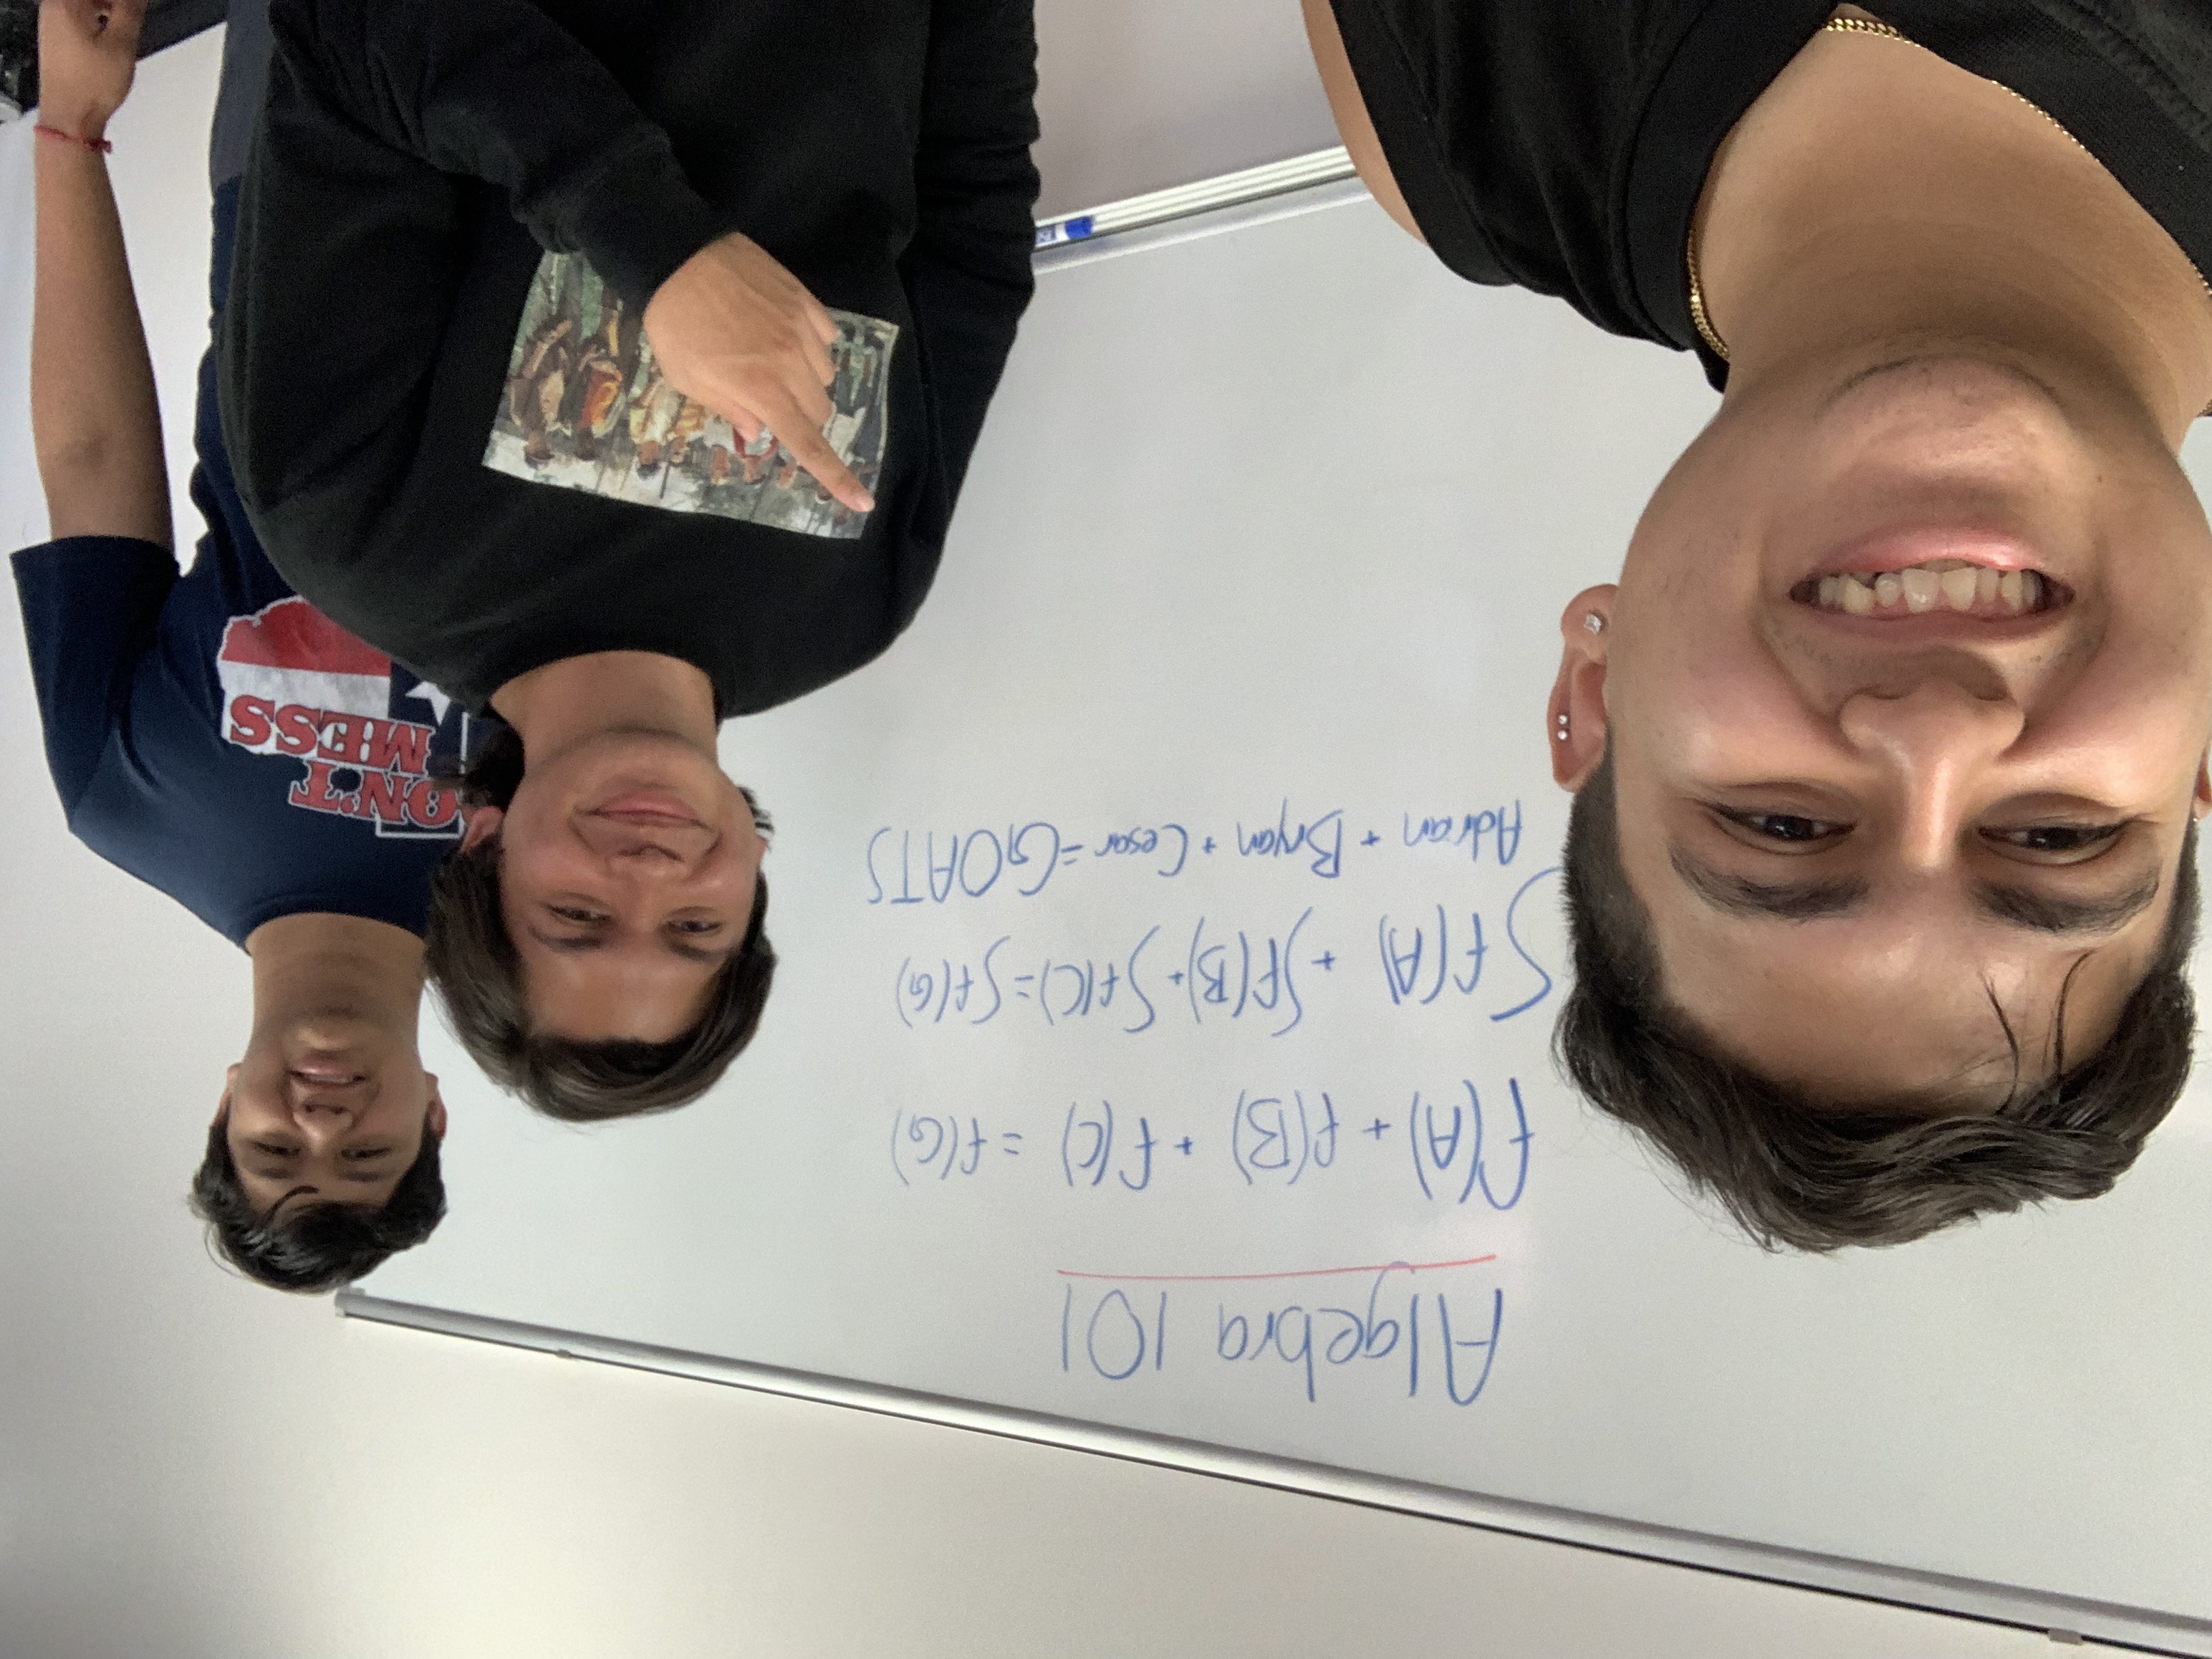 Algebra 101
f(A) + f(B) + f(C) = f(G)
∫f(A) + ∫f(B) + ∫f(C) = ∫f(G)
Adrian + Bryan + Cesar = GOATS
ON'T
MESS